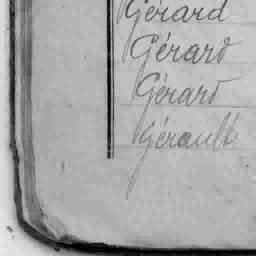 Gérard
Gérard
Gérard
Gérault